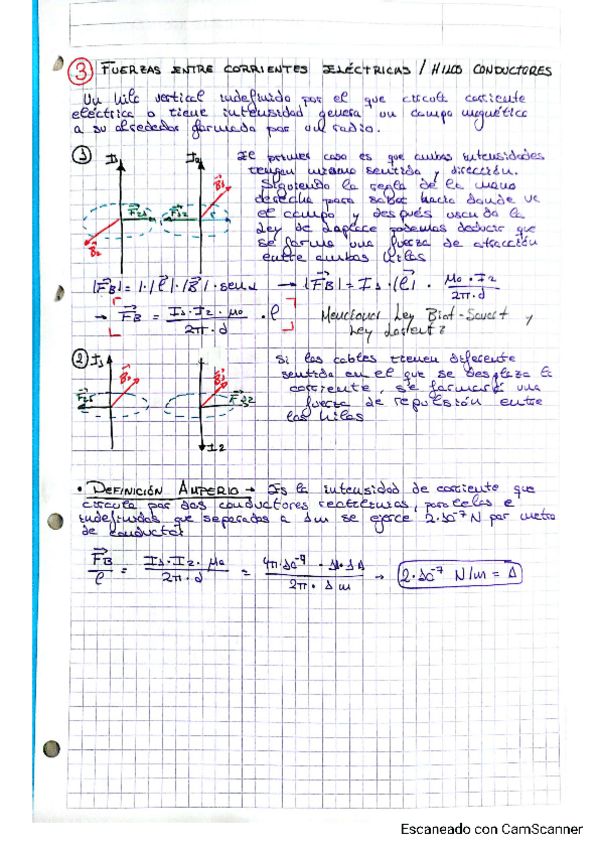 ③ FUERZAS ENTRE CORRIENTES ELÉCTRICAS / HILOS CONDUCTORES
Un hilo vertical indefinido por el que circula corriente
eléctrica o tiene intensidad genera un campo magnético
a su alrededor formado por un radio.
① I₁ I₂ El primer caso es que ambas intensidades
tengan mismo sentido y dirección.
Siguiendo la regla de la mano
derecha para saber hacia donde va
el campo y después usando la
Ley de Laplace podemos deducir que
se forma una fuerza de atracción
entre ambos hilos
B₁ F₂₁ F₁₂ B₂
|F_B| = I · |ℓ| · |B| · sen α → |F_B| = I₁ · |ℓ| · μ₀ · I₂ / 2π · d
→ F_B = I₁ · I₂ · μ₀ / 2π · d · ℓ Mencionar Ley Biot-Savart y
Ley Lorentz
② I₁ Si los cables tienen diferente
sentido en el que se desplaza la
corriente, se formará una
fuerza de repulsión entre
los hilos
I₂
• DEFINICIÓN AMPERIO → Es la intensidad de corriente que
circula por dos conductores rectilíneos, paralelos e
indefinidos que separados a 1m se ejerce 2·10⁻⁷ N por metro
de conductor
F_B / ℓ = I₁ · I₂ · μ₀ / 2π · d = 4π·10⁻⁷ · 1A·1A / 2π · 1m → 2·10⁻⁷ N/m = A
Escaneado con CamScanner